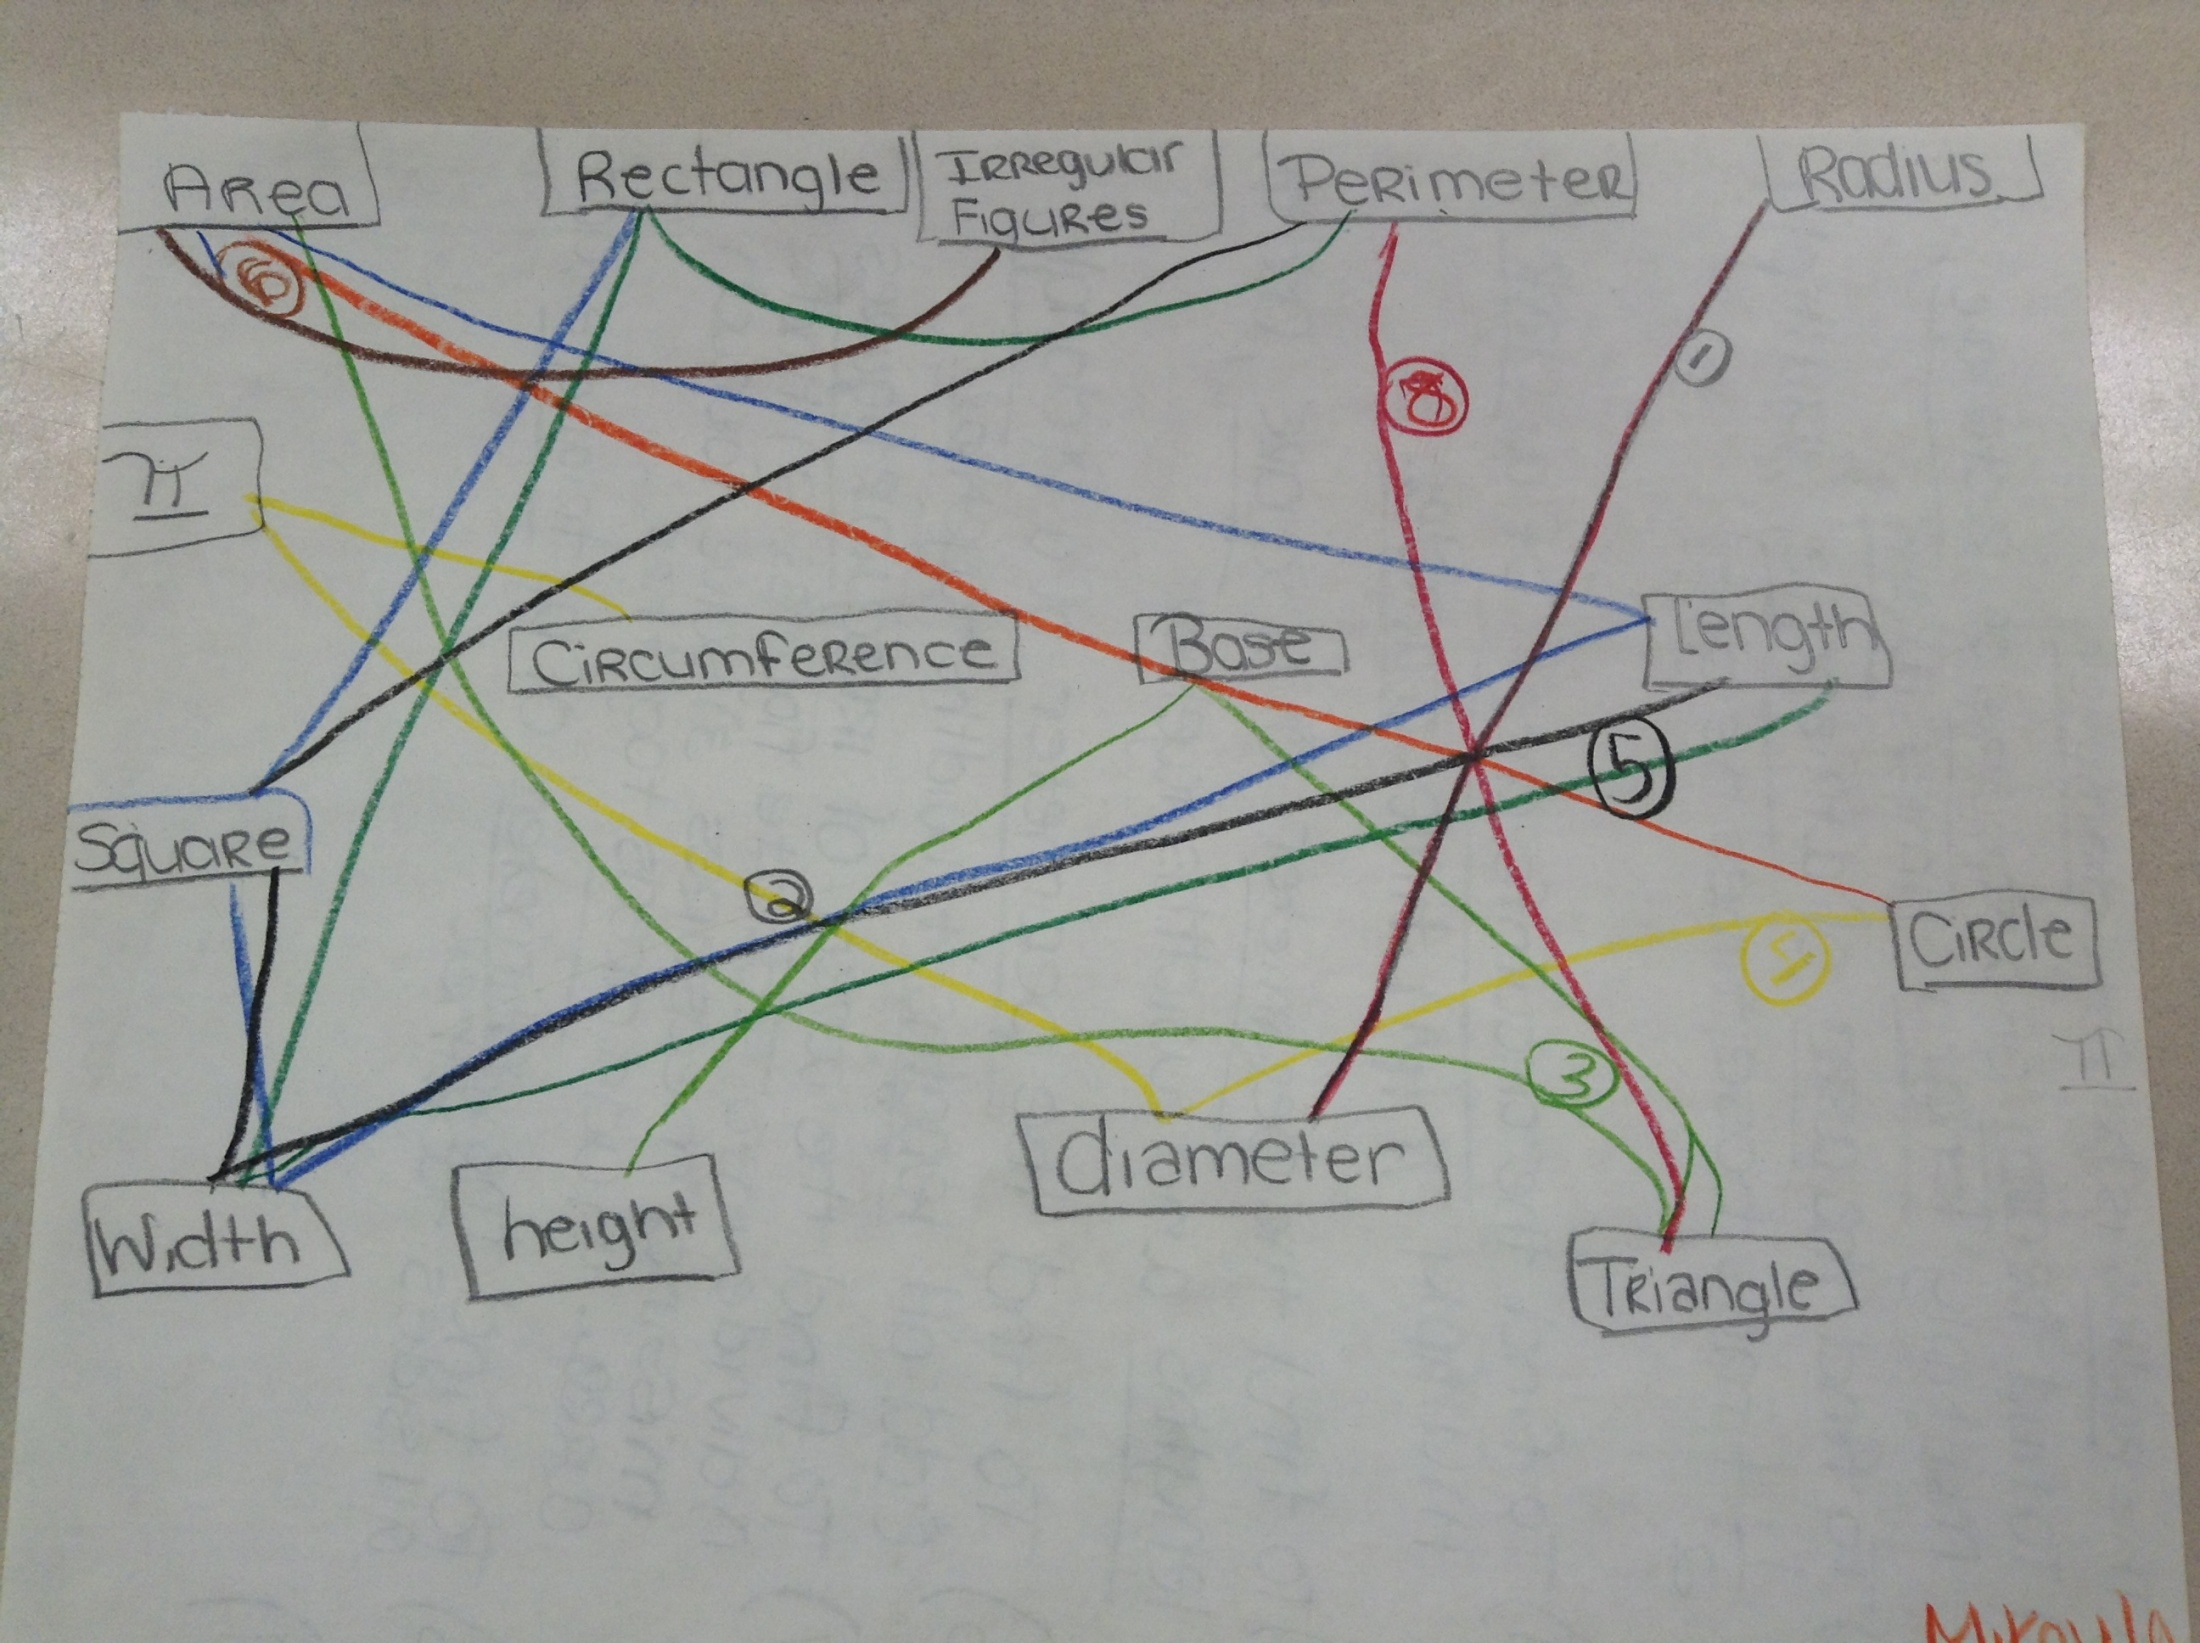 Area
Rectangle
Irregular
Figures
Perimeter
Radius
6
1
8
π
Circumference
Base
Length
5
Square
2
Circle
4
3
π
diameter
Width
height
Triangle